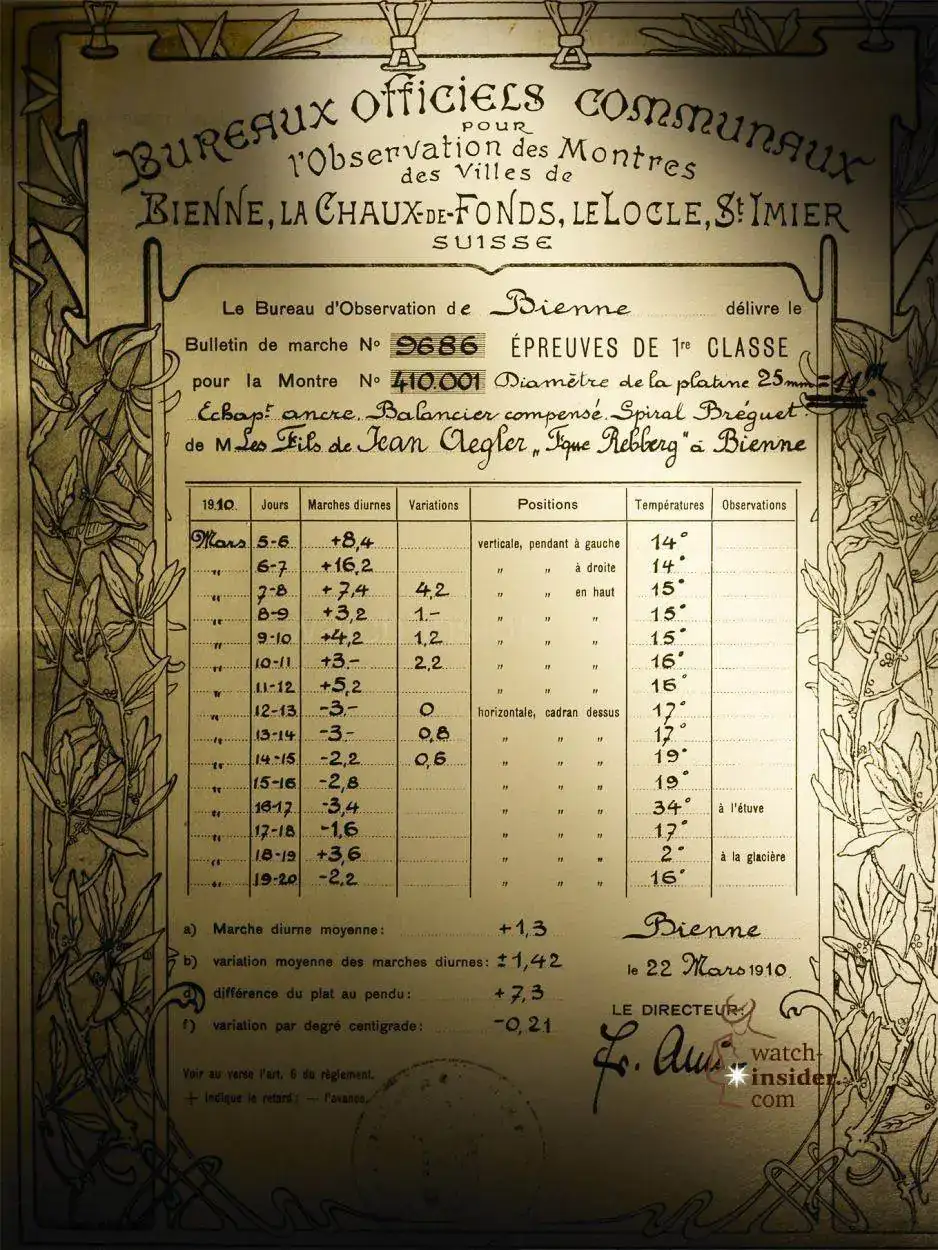 BUREAUX OFFICIELS COMMUNAUX
POUR
l'Observation des Montres
des Villes de
BIENNE, LA CHAUX-DE-FONDS, LE LOCLE, St IMIER
SUISSE
Le Bureau d'Observation de Bienne délivre le
Bulletin de marche No 9686 ÉPREUVES DE 1re CLASSE
pour la Montre No 410.001 Diamètre de la platine 25mm = 11'''
Echapt ancre. Balancier compensé. Spiral Bréguet.
de M Les Fils de Jean Aegler „Fque Rebberg" à Bienne
1910. Jours Marches diurnes Variations Positions Températures Observations
Mars 5-6 +8,4 verticale, pendant à gauche 14°
" 6-7 +16,2 " " à droite 14°
" 7-8 +7,4 4,2 " " en haut 15°
" 8-9 +3,2 1.- " " " 15°
" 9-10 +4,2 1,2 " " " 15°
" 10-11 +3.- 2,2 " " " 16°
" 11-12 +5,2 " " " 16°
" 12-13 -3.- 0 horizontale, cadran dessus 17°
" 13-14 -3- 0,8 " " " 17°
" 14-15 -2,2 0,6 " " " 19°
" 15-16 -2,8 " " " 19°
" 16-17 -3,4 " " " 34° à l'étuve
" 17-18 -1,6 " " " 17°
" 18-19 +3,6 " " " 2° à la glacière
" 19-20 -2,2 " " " 16°
a) Marche diurne moyenne: +1,3 Bienne
b) variation moyenne des marches diurnes: ±1,42 le 22 Mars 1910.
d) différence du plat au pendu: +7,3
LE DIRECTEUR:
f) variation par degré centigrade: -0,21
Voir au verse l'art. 6 du règlement.
+ indique le retard; — l'avance.
watch-
insider.
com